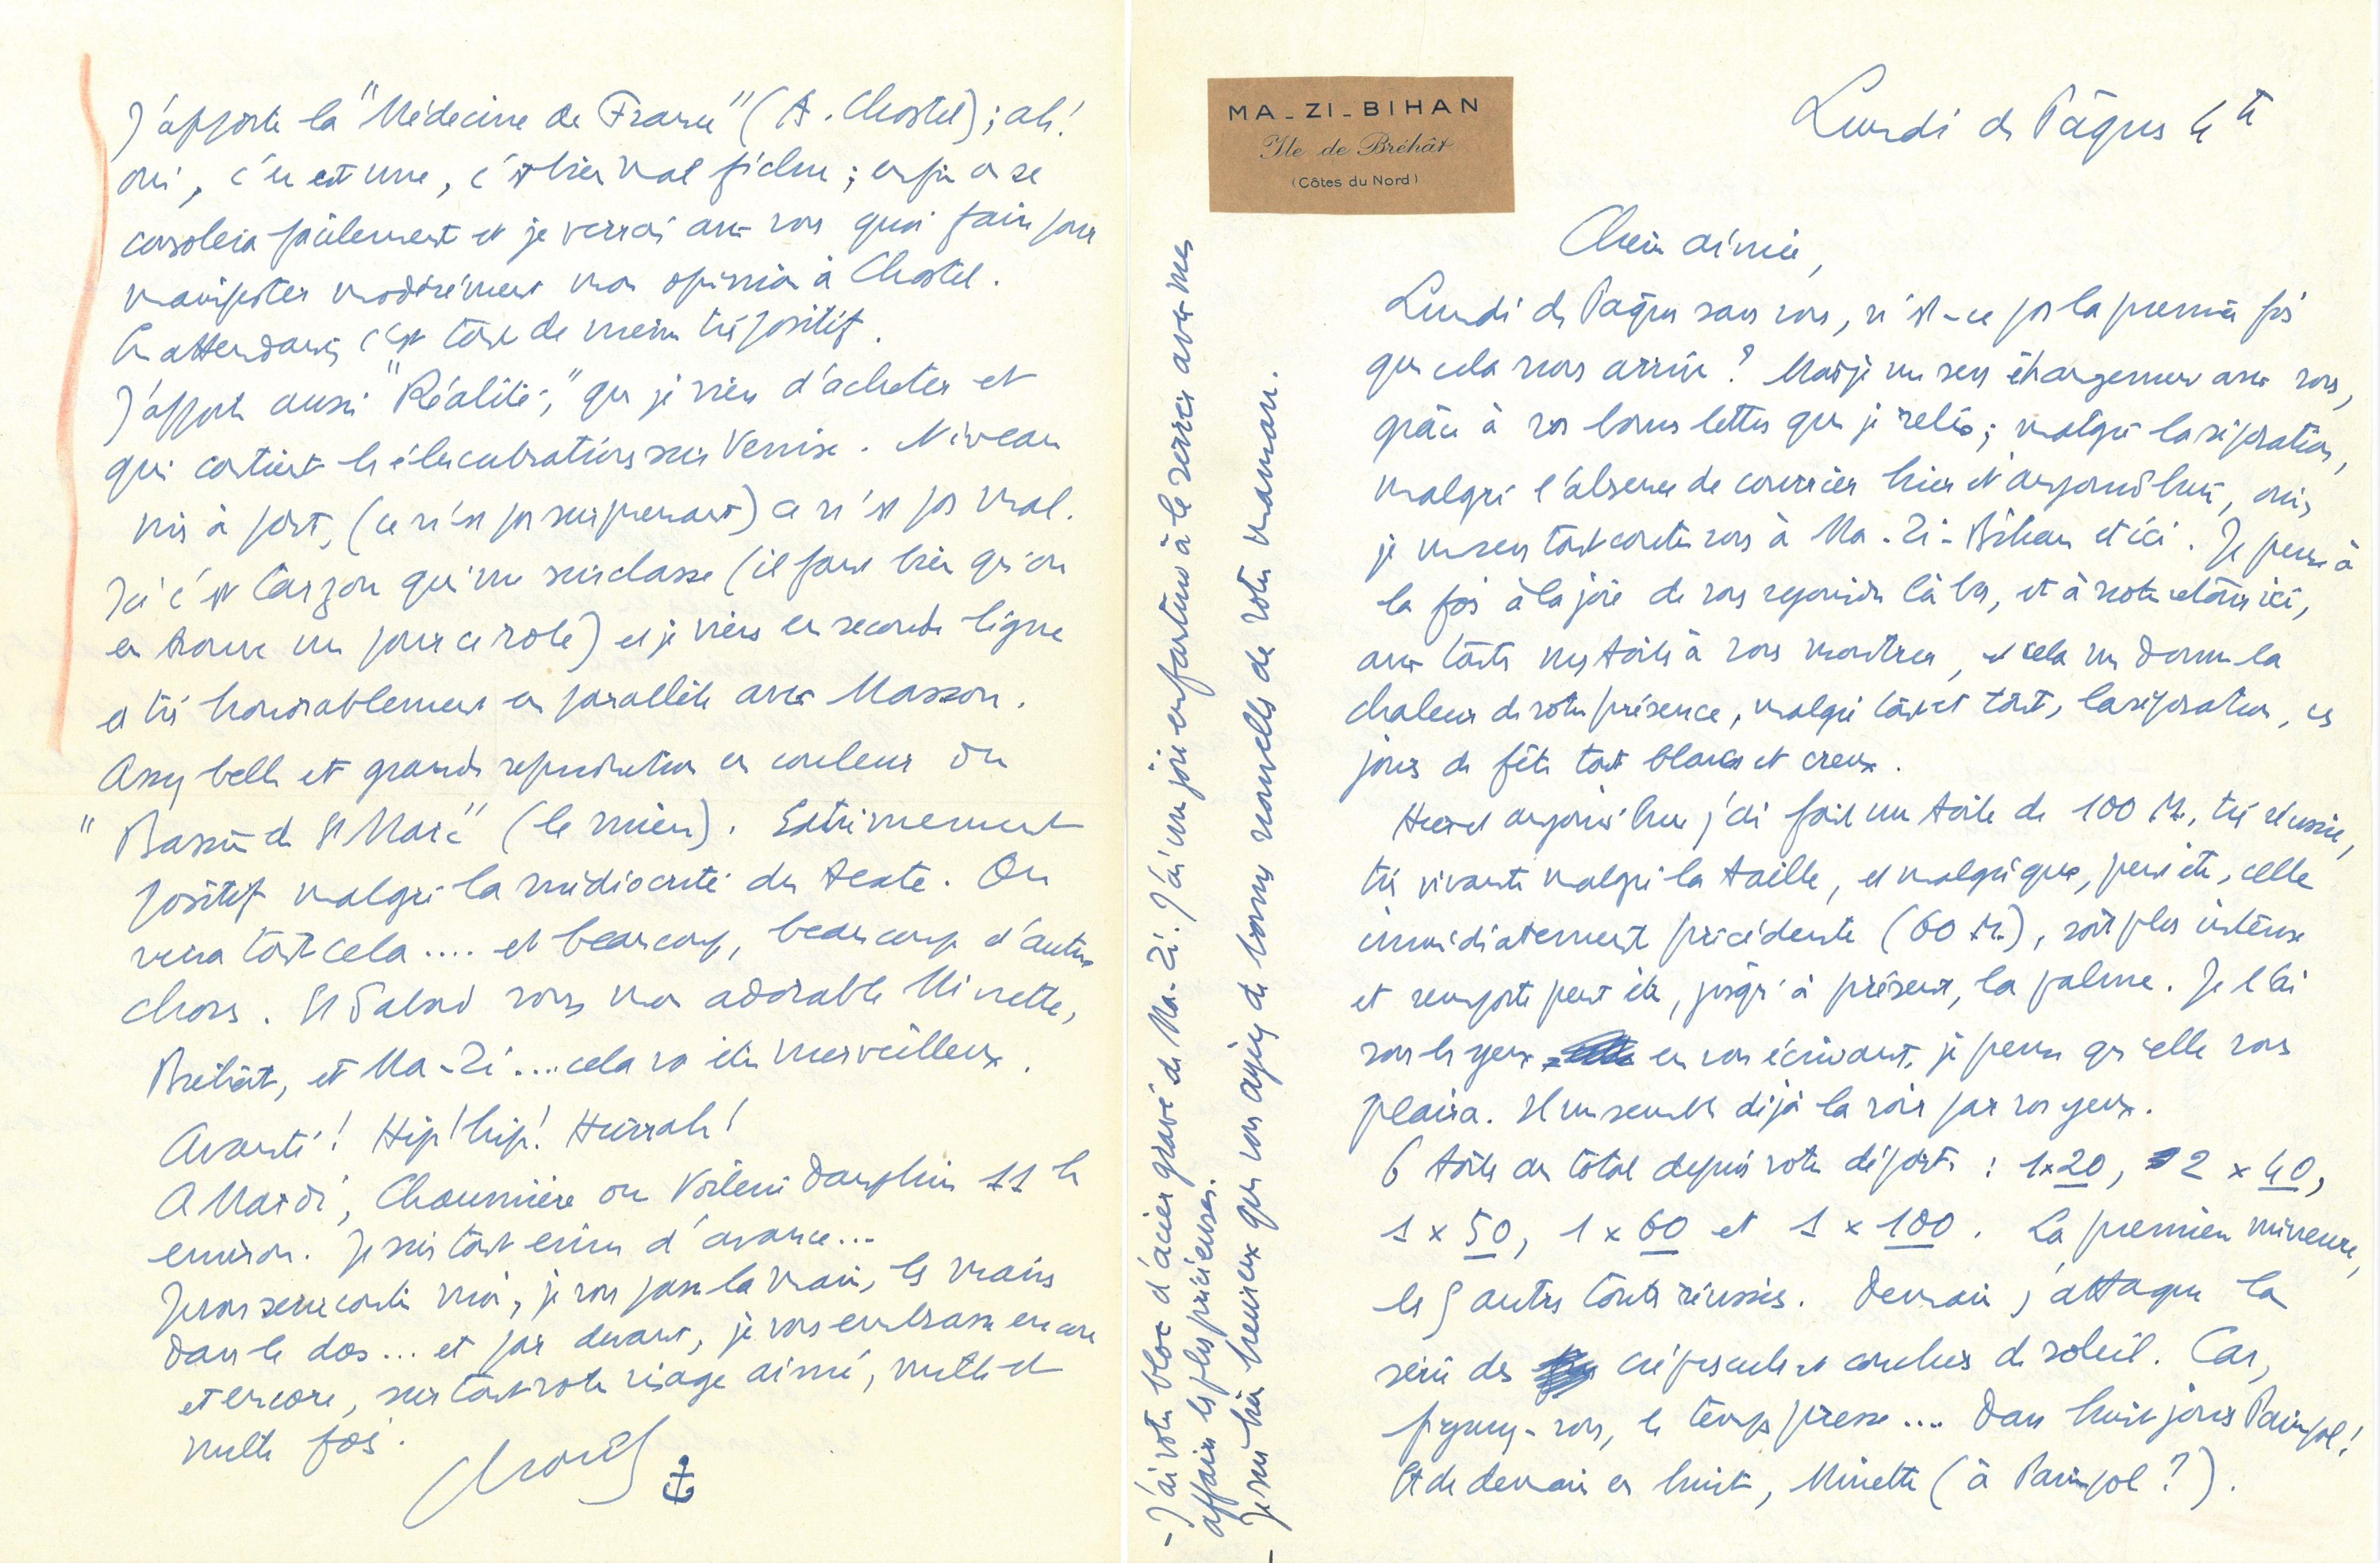 MA-ZI-BIHAN
Ile de Bréhat
(Côtes du Nord)
Lundi de Pâques
Chère aimée,
Lundi de Pâques sans vous, n'est-ce pas la première fois
que cela nous arrive ? Mais je me sens étrangement avec vous,
grâce à vos bonnes lettres que je relis ; malgré la séparation,
malgré l'absence de courrier hier et aujourd'hui, oui,
je me sens tout contre vous à Ma-Zi-Bihan et ici. Je pense à
la fois à la joie de vous rejoindre là bas, et à notre retour ici,
avec toutes mes toiles à vous montrer, et cela me donne la
chaleur de votre présence, malgré tout et tout, la séparation, ces
jours de fête tout blancs et creux.
Hier et aujourd'hui j'ai fait une toile de 100 M, très réussie,
très vivante malgré la taille, et malgré que, peut être, celle
immédiatement précédente (60 M.), soit plus intense
et remporte peut être, jusqu'à présent, la palme. Je l'ai
sous les yeux en vous écrivant, je pense qu'elle vous
plaira. Il me semble déjà la voir par vos yeux.
6 toiles au total depuis votre départ : 1x20, 2 x 40,
1 x 50, 1 x 60 et 1 x 100. La première mineure,
les 5 autres toutes réussies. Demain j'attaque la
série des crépuscules et couchers de soleil. Car,
figurez-vous, le temps presse.... Dans huit jours Paimpol !
Et de demain en huit, Minette (à Paimpol ?).
- J'ai votre bloc d'acier gravé de Ma-Zi. J'ai une joie enfantine à le serrer avec mes
affaires les plus précieuses.
- Je suis très heureux que vous ayiez de bonnes nouvelles de votre maman.
J'apporte la "Médecine de France" (A. Chastel) ; ah !
oui, c'en est une, c'est bien mal fichu ; enfin on se
consolera facilement et je verrai avec vous quoi faire pour
manifester modérément mon opinion à Chastel.
En attendant, c'est tout de même très positif.
J'apporte aussi "Réalités," que je viens d'acheter et
qui contient les élucubrations sur Venise. Niveau
mis à part, (ce n'est pas surprenant) ce n'est pas mal.
Ici c'est Carzou qui me surclasse (il faut bien qu'on
en trouve un pour ce rôle) et je viens en seconde ligne
et très honorablement en parallèle avec Masson.
Assez belle et grande reproduction en couleurs du
"Bassin de St Marc" (le mien). Extrêmement
positif malgré la médiocrité du texte. On
verra tout cela.... et beaucoup, beaucoup d'autres
choses. Et d'abord vous mon adorable Minette,
Bréhat, et Ma-Zi.... cela va être merveilleux.
Avanti ! Hip ! hip ! Hurrah !
A Mardi, Chaumière ou Vedette Dauphin 11 h
environ. Je suis tout ému d'avance...
Je vous serre contre moi, je vous passe la main, les mains
dans le dos... et par devant, je vous embrasse encore
et encore, sur tout votre visage aimé, mille et
mille fois.